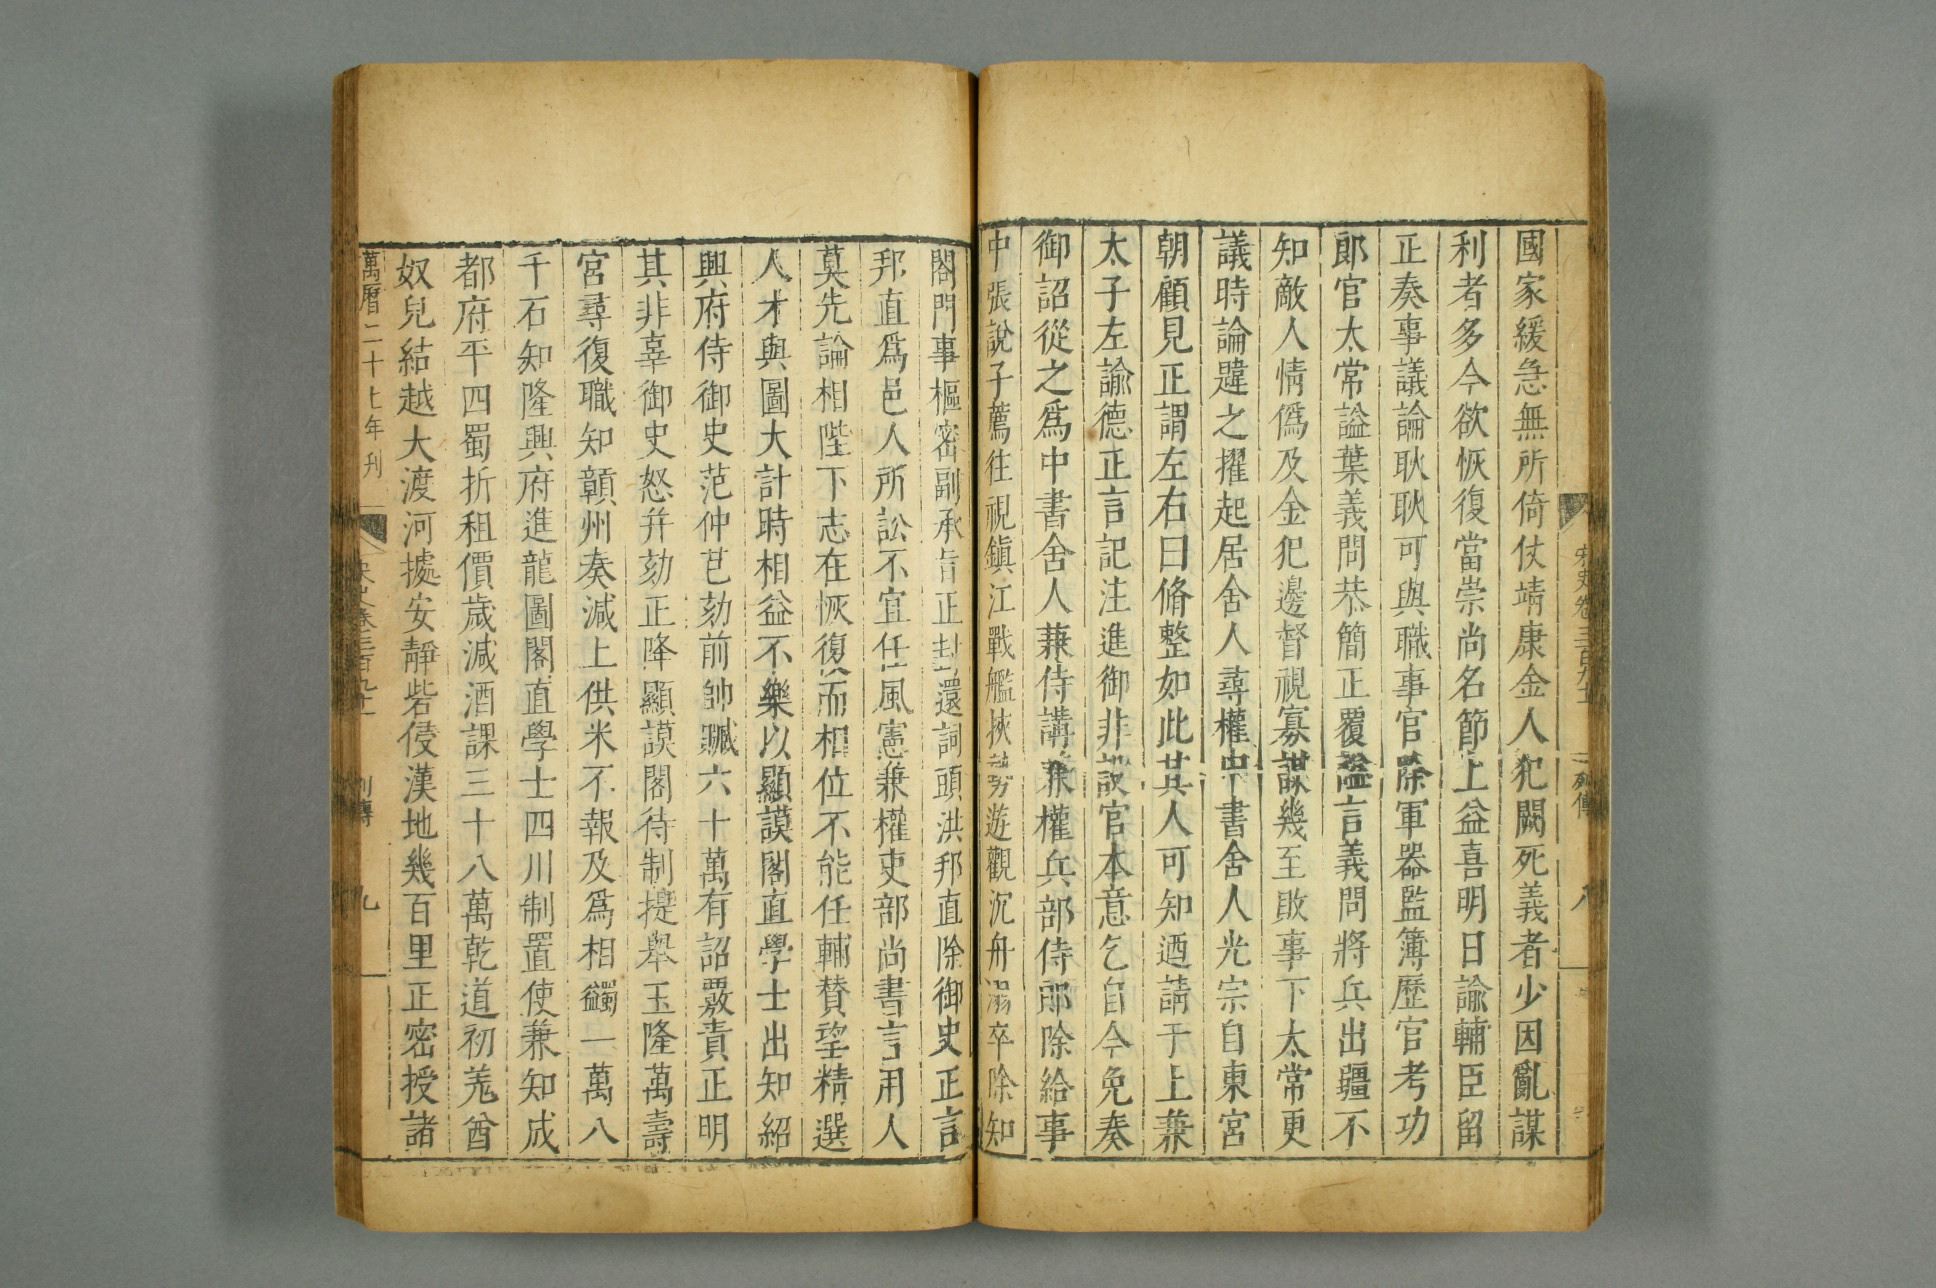 國家緩急無所倚仗靖康金人犯闕死義者少因亂謀
利者多今欲恢復當崇尚名節上益喜明日諭輔臣留
正奏事議論耿耿可與職事官除軍器監簿歷官考功
郎官太常謚葉義問恭簡正覆謚言義問將兵出疆不
知敵人情僞及金犯邊督視寡謀幾至敗事下太常更
議時論韙之擢起居舍人尋權中書舍人光宗自東宮
朝顧見正謂左右曰脩整如此其人可知迺請于上兼
太子左諭德正言記注進御非設官本意乞自今免奏
御詔從之爲中書舍人兼侍講兼權兵部侍郎除給事
中張說子薦往視鎮江戰艦挾勢遊觀沉舟溺卒除知
閤門事樞密副承旨正封還詞頭洪邦直除御史正言
邦直爲邑人所訟不宜任風憲兼權吏部尚書言用人
莫先論相陛下志在恢復而相位不能任輔贊望精選
人才與圖大計時相益不樂以顯謨閣直學士出知紹
興府侍御史范仲芑劾前帥贓六十萬有詔覈責正明
其非辜御史怒并劾正降顯謨閣待制提舉玉隆萬壽
宮尋復職知贑州奏減上供米不報及爲相蠲一萬八
千石知隆興府進龍圖閣直學士四川制置使兼知成
都府平四蜀折租價歲減酒課三十八萬乾道初羗酋
奴兒結越大渡河據安靜砦侵漢地幾百里正密授諸
萬曆二十七年刊
宋史卷三百九十一
列傳
九